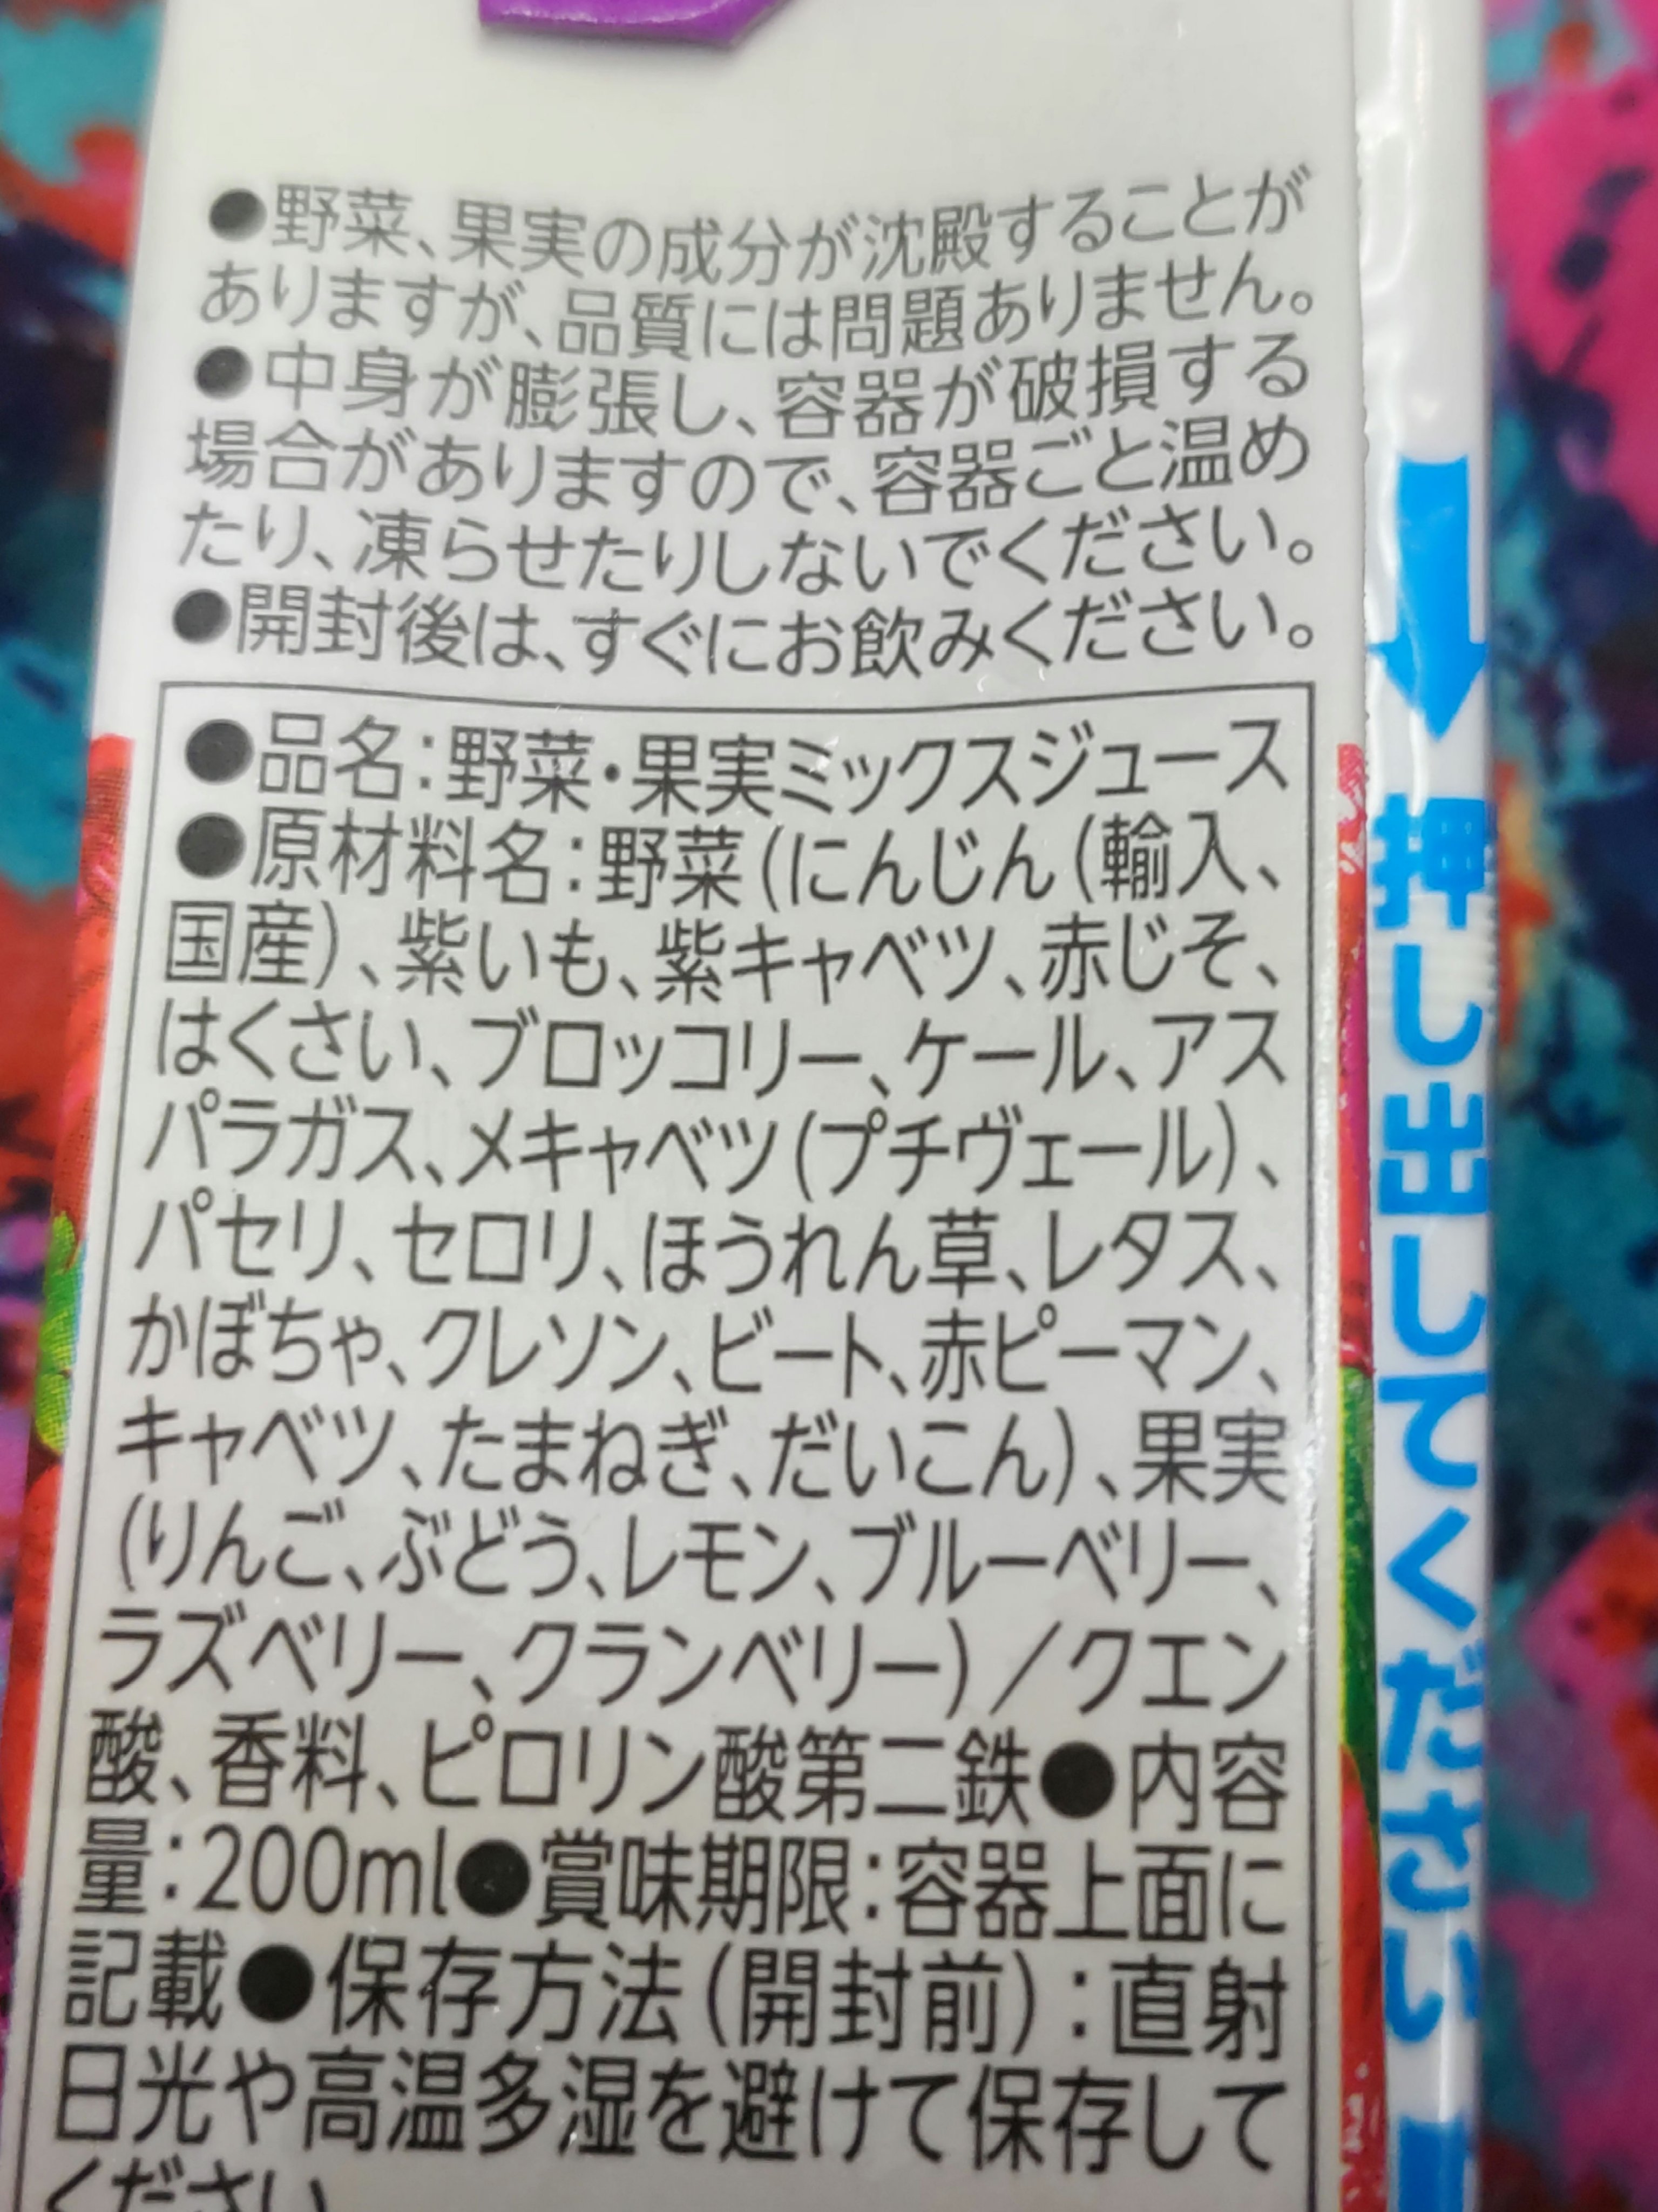 ●野菜、果実の成分が沈殿することが
ありますが、品質には問題ありません。
●中身が膨張し、容器が破損する
場合がありますので、容器ごと温め
たり、凍らせたりしないでください。
●開封後は、すぐにお飲みください。
●品名：野菜・果実ミックスジュース
●原材料名：野菜（にんじん（輸入、
国産）、紫いも、紫キャベツ、赤じそ、
はくさい、ブロッコリー、ケール、アス
パラガス、メキャベツ（プチヴェール）、
パセリ、セロリ、ほうれん草、レタス、
かぼちゃ、クレソン、ビート、赤ピーマン、
キャベツ、たまねぎ、だいこん）、果実
（りんご、ぶどう、レモン、ブルーベリー、
ラズベリー、クランベリー）／クエン
酸、香料、ピロリン酸第二鉄●内容
量：200ml●賞味期限：容器上面に
記載●保存方法（開封前）：直射
日光や高温多湿を避けて保存して
ください
押し出してください